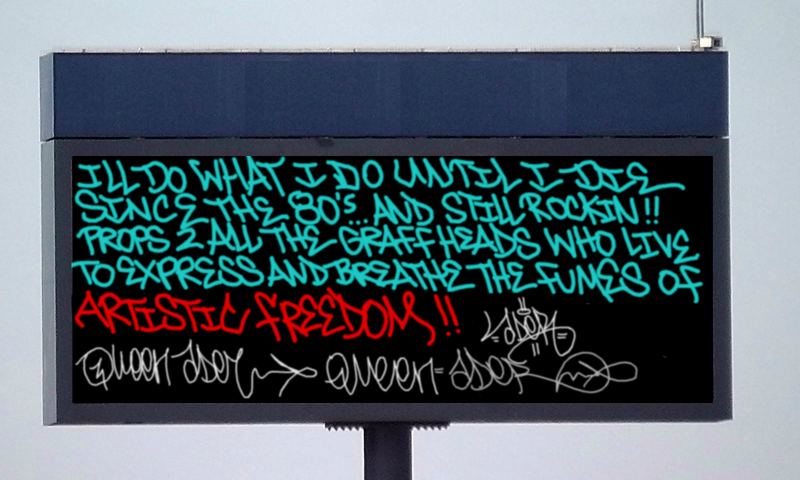 I'LL DO WHAT I DO UNTIL I DIE
SINCE THE 80'S... AND STILL ROCKIN!!
PROPS 2 ALL THE GRAFFHEADS WHO LIVE
TO EXPRESS AND BREATHE THE FUMES OF
ARTISTIC FREEDOM!!
QUEEN QUEEN